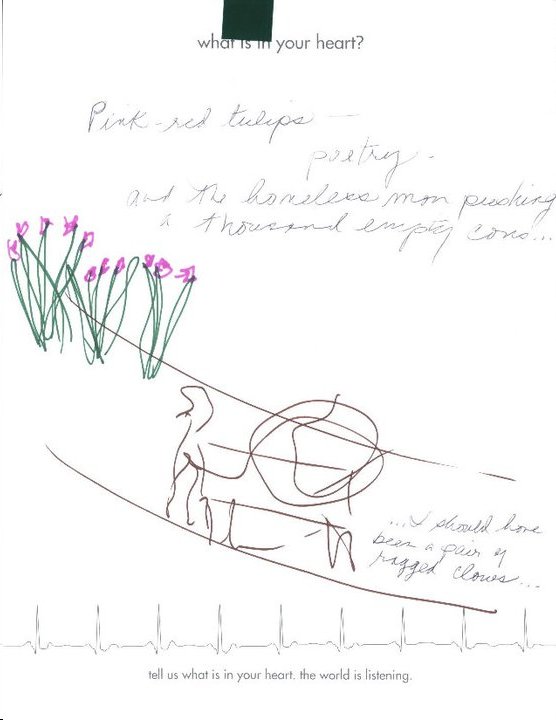 what is in your heart?
Pink-red tulips —
poetry -
and the homeless man pushing
a thousand empty cans...
...I should have
been a pair of
ragged claws...
tell us what is in your heart. the world is listening.